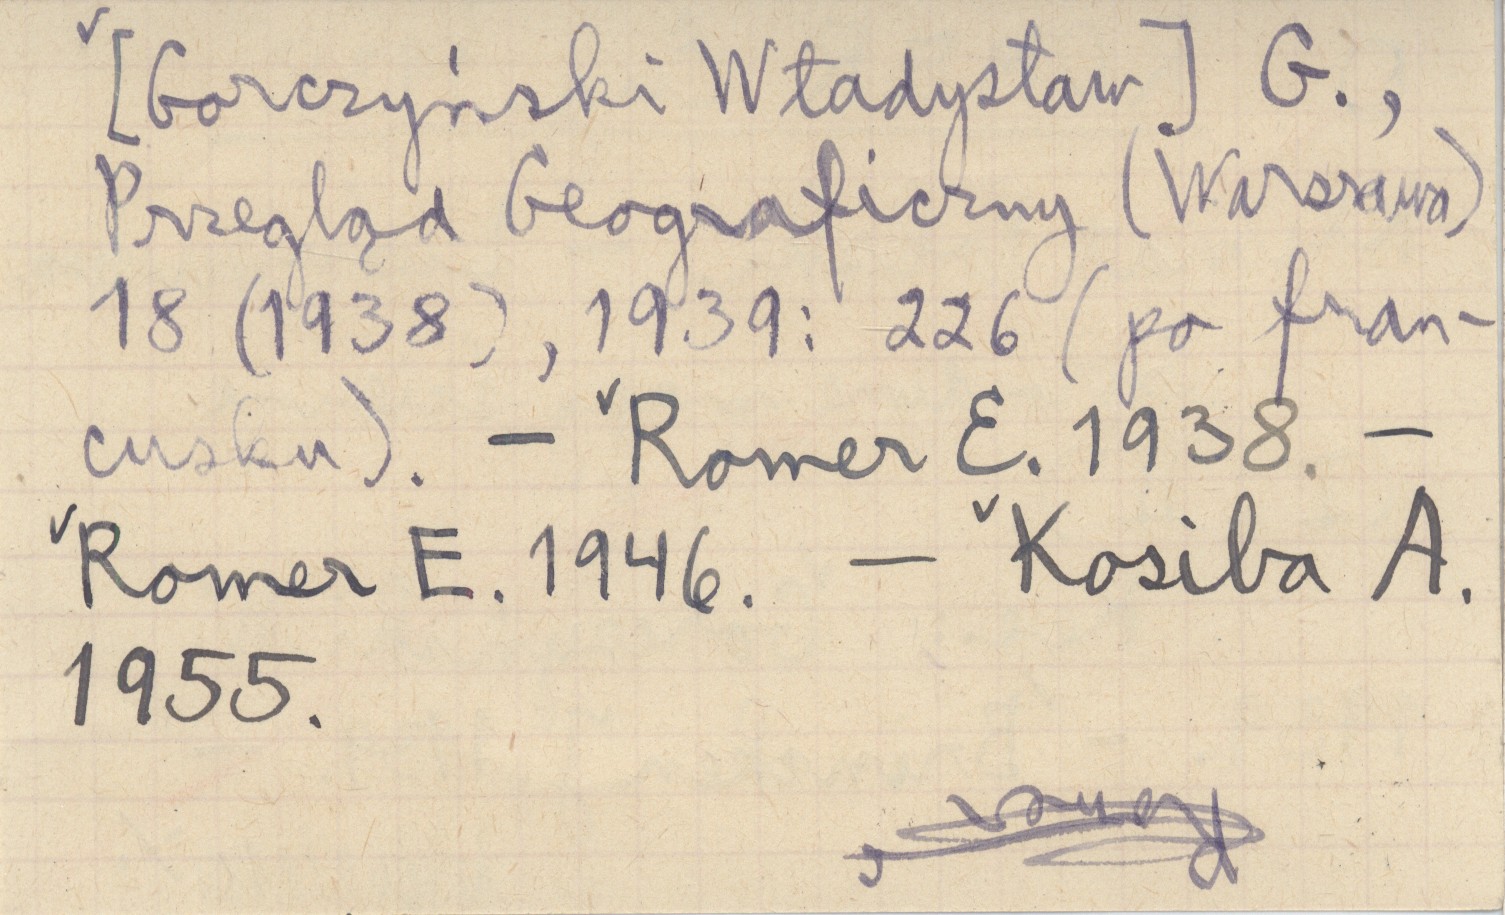 ˇ[Gorczyński Władysław] G.,
Przegląd Geograficzny (Warszawa)
18 (1938), 1939: 226 (po fran-
cusku). — ˇRomer E. 1938. —
ˇRomer E. 1946. — ˇKosiba A.
1955.
Romer,